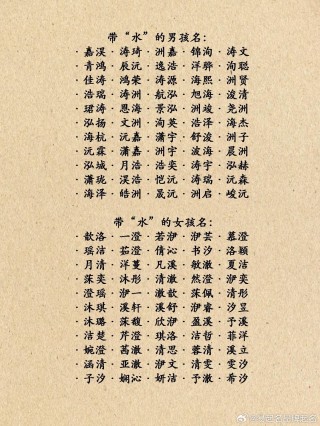 带“水”的男孩名:
·嘉淏·涛琦·洲嘉·锦洵·涛文
·青鸿·辰沅·逸浩·洋骅·洵聪
·佳涛·鸿荣·涛源·海熙·洲贤
·浩瑞·涛洲·航泓·旭海·浚清
·珺涛·恩海·景泓·洲竣·尧洲
·泓扬·文洲·洵英·浩泽·海杰
·海杭·沅嘉·潇宇·舒波·洲子
·沅霖·潇嘉·洲宇·波海·晨洲
·泓城·月浩·浩奕·涛宇·泓赫
·潇珑·淏浩·恺沅·涛瑞·沅森
·海泽·皓洲·晟沅·洲启·峻沅
带“水”的女孩名:
·歆洛·一澄·若洢·洢芸·慕澄
·瑶洁·茹澄·倩沁·书汐·洛颖
·月清·洋蔓·凡溪·敏澈·夏洁
·溁奕·沐彤·清澈·然澄·洢奕
·澄瑶·洢一·澈歆·溁佩·清彤
·沐琪·溪轩·溪舒·洢睿·汐昱
·沐璐·溁馥·欣洢·盈溪·予溪
·洁楚·芹澄·琪洛·洁哲·菲洋
·婉澄·茜澈·清思·蓉清·溪立
·涵清·亚澈·洢文·清雯·一溪
·子汐·娴沁·妍洁·予澈·希汐